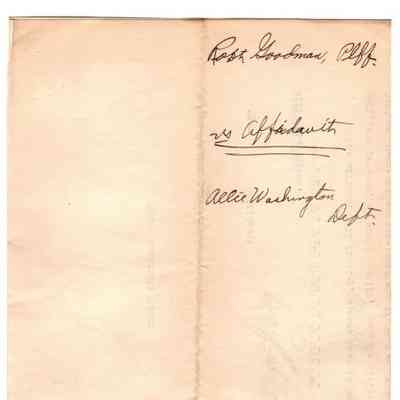 Robt. Goodman, Plff.
vs Affidavit
Allie Washington
Deft.